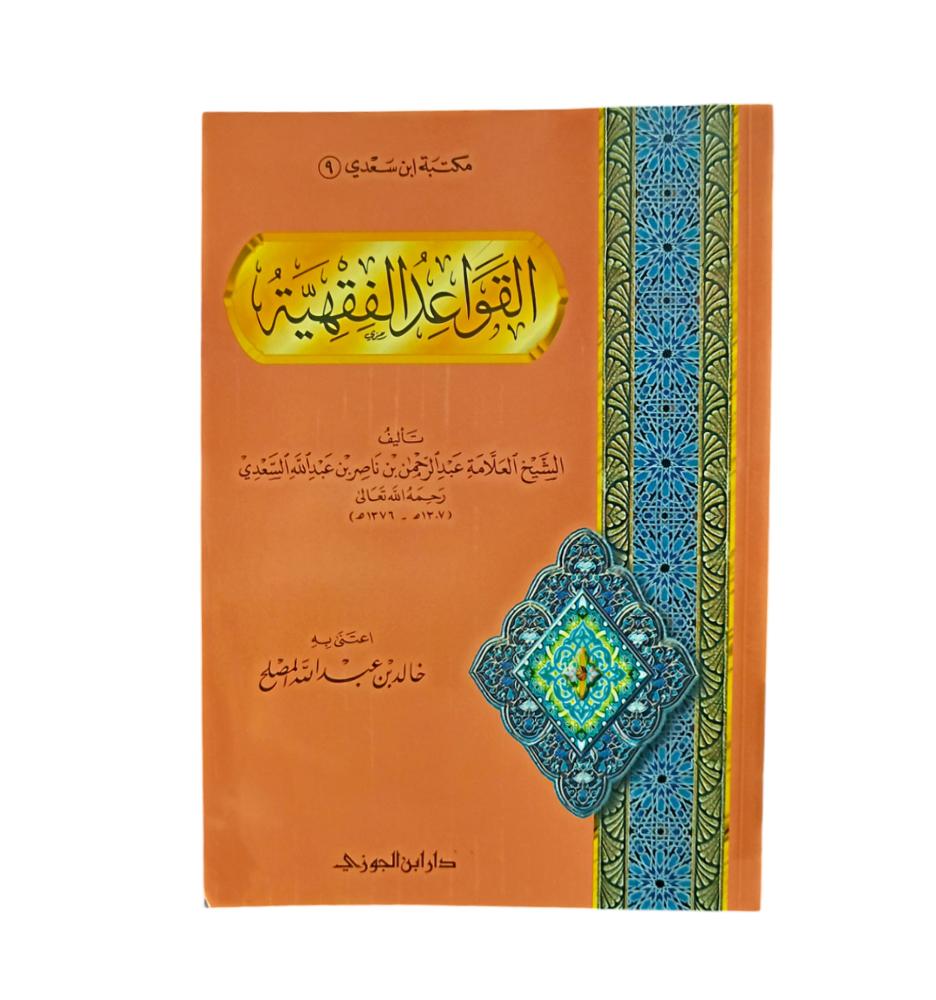 مكتبة ابن سعدي (٩)
القَوَاعِدُ الفِقْهِيَّةُ
تَأليفُ
الشَّيْخ العَلَّامَة عَبْدِ الرَّحْمٰن بْن نَاصِر بْن عَبْدِ اللَّه السَّعْدِي
رَحِمَهُ اللَّه تَعَالىٰ
(١٣٠٧هـ - ١٣٧٦هـ)
اعتَنَىٰ بِهِ
خَالد بْن عَبْد اللَّه المصْلِح
دار ابن الجوزي